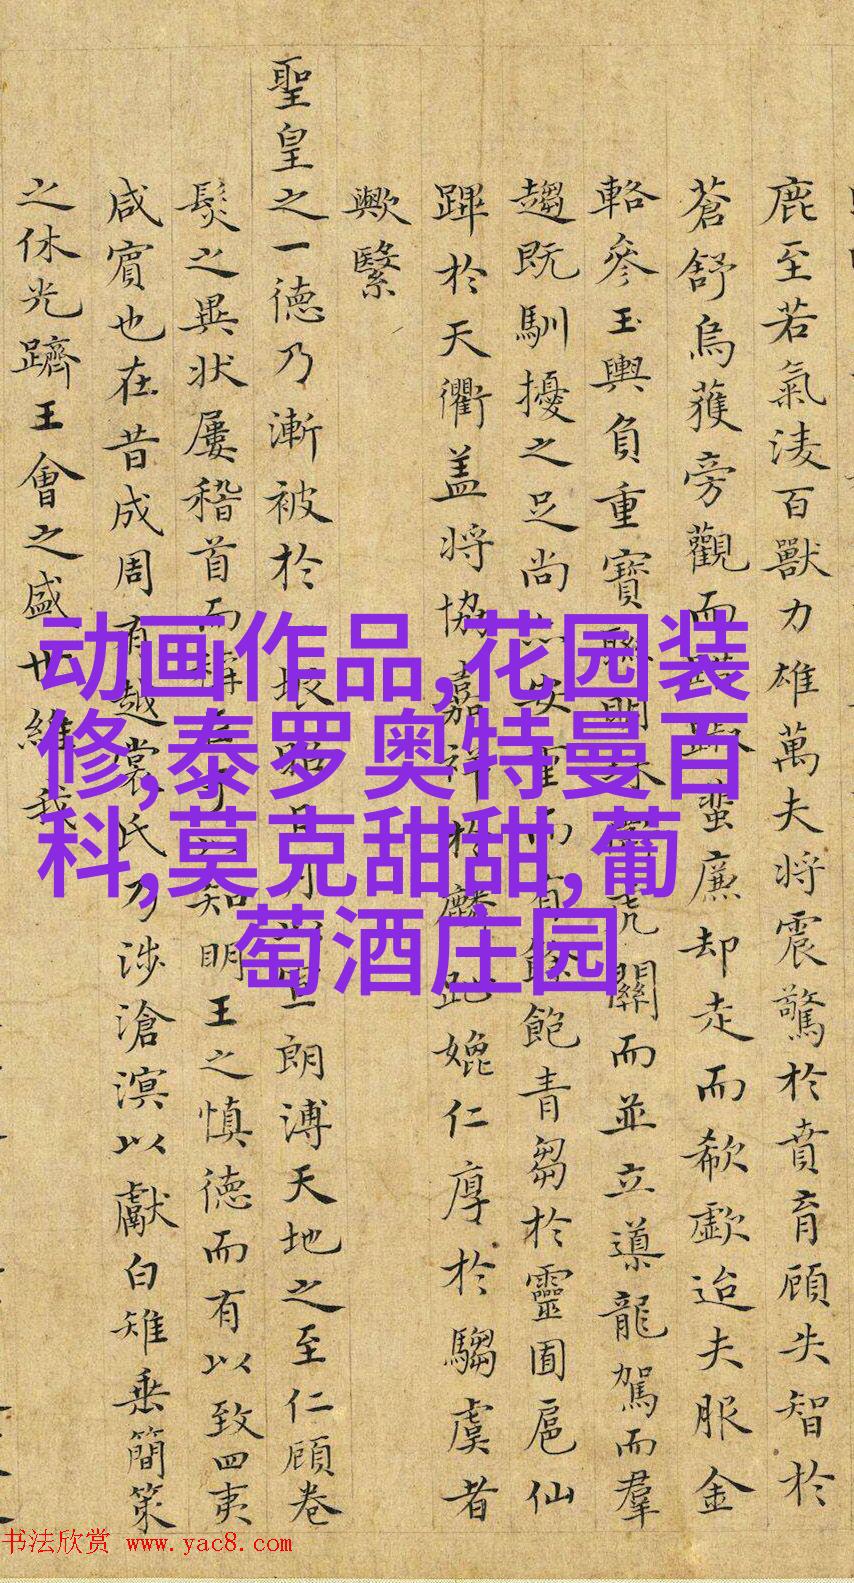 鹿至若氣淩百獸力雄萬夫將震驚於賁育顧失智於
蒼舒烏獲旁觀而蜚廉却走而欷歔迨夫服金
輅參玉輿負重寶關而並立導龍駕而羣
趨既馴擾之足尚而有飽青芻於靈囿扈仙
蹕於天衢盖將協嘉祥於麟趾媲仁厚於騶虞者
歟繄
聖皇之一德乃漸被於朗溥天地之至仁顧卷
髮之異狀屢稽首而知明王之慎德而有以致四夷
咸賓也在昔成周有越裳氏乃涉滄溟以獻白雉垂簡策
之休光躋王會之盛世維我
动画作品,花园装
修,泰罗奥特曼百
科,莫克甜甜,葡
萄酒庄园
书法欣赏 www.yac8.com